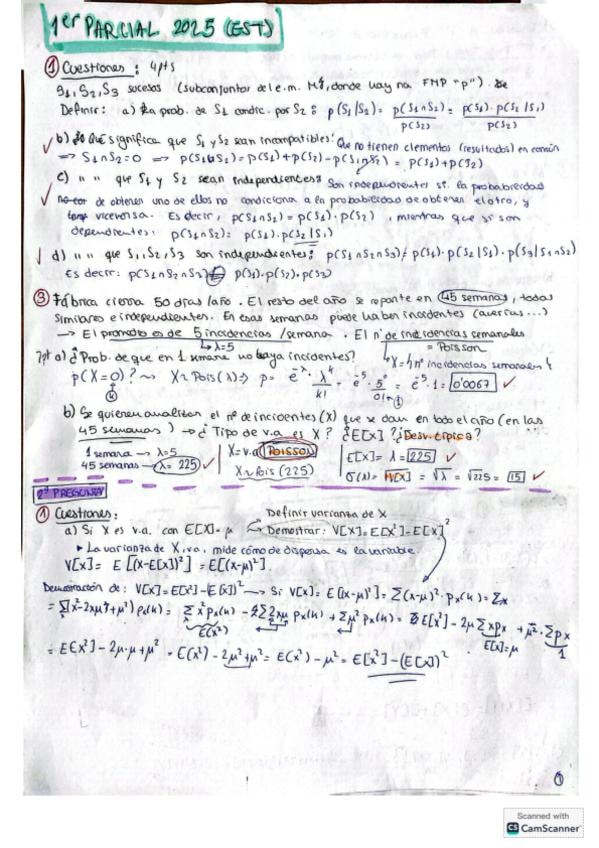 1er PARCIAL 2025 (EST)
① Cuestiones: 4pts
S1, S2, S3 sucesos (subconjuntos del e.m. , donde hay na FMP "p").
Definir: a) La prob. de S1 condic. por S2: p(S1|S2) = p(S1∩S2)/p(S2) = p(S1)·p(S2|S1)/p(S2)
b) Qué significa que S1 y S2 sean incompatibles? Que no tienen elementos (resultados) en común
⇒ S1∩S2=0 ⇒ p(S1∪S2) = p(S1)+p(S2)-p(S1∩S2) = p(S1)+p(S2)
c) " " que S1 y S2 sean independientes? Son independientes si la probabilidad
de obtener uno de ellos no condiciona a la probabilidad de obtener el otro, y
viceversa. Es decir, p(S1∩S2) = p(S1)·p(S2), mientras que si son
dependientes: p(S1∩S2) = p(S1)·p(S2|S1)
d) " " que S1, S2, S3 son independientes: p(S1∩S2∩S3) ≠ p(S1)·p(S2|S1)·p(S3|S1∩S2)
Es decir: p(S1∩S2∩S3) = p(S1)·p(S2)·p(S3)
③ Fábrica cierra 50 días/año. El resto del año se reparte en 45 semanas, todas
similares e independientes. En esas semanas puede haber incidentes (averías...)
→ El promedio es de 5 incidencias/semana. El nº de incidencias semanales
↳ λ=5
= Poisson
↳ X = nº incidencias semanales
a) ¿Prob. de que en 1 semana no haya incidentes?
p(X=0)? ⇝ X~Pois(λ) ⇒ p = e^-λ · λ^k/k! = e^-5 · 5^0/0! = e^-5 · 1 = 0'0067 ✓
b) Se quieren analizar el nº de incidentes (X) que se dan en todo el año (en las
45 semanas) → ¿Tipo de v.a es X? ¿E[X]? ¿Desv. típica?
1 semana → λ=5
45 semanas → λ=225 ✓
X = v.a POISSON
X~Pois(225)
E[X] = λ = 225 ✓
σ(X) = √V[X] = √λ = √225 = 15 ✓
2ª PREGUNTA
① Cuestiones:
Definir varianza de X
a) Si X es v.a. con E[X]=μ
Demostrar: V[X]=E[X²]-E[X]²
▸ La varianza de X, v.a, mide cómo de dispersa es la variable.
V[X] = E[(X-E[X])²] = E[(X-μ)²].
Demostración de: V[X]=E[X²]-(E[X])² → Si V[X] = E[(X-μ)²] = Σ(x-μ)²·px(x) =
= Σ(x²-2xμ+μ²) px(x) = Σ x² px(x) - Σ2xμ px(x) + Σμ² px(x) = E[X²] - 2μ Σxpx + μ²·Σpx
E(X²)
E[X]=μ
1
= E[X²] - 2μ·μ + μ² = E(X²) - 2μ² + μ² = E(X²) - μ² = E[X²] - (E[X])²
①
Scanned with
CS CamScanner